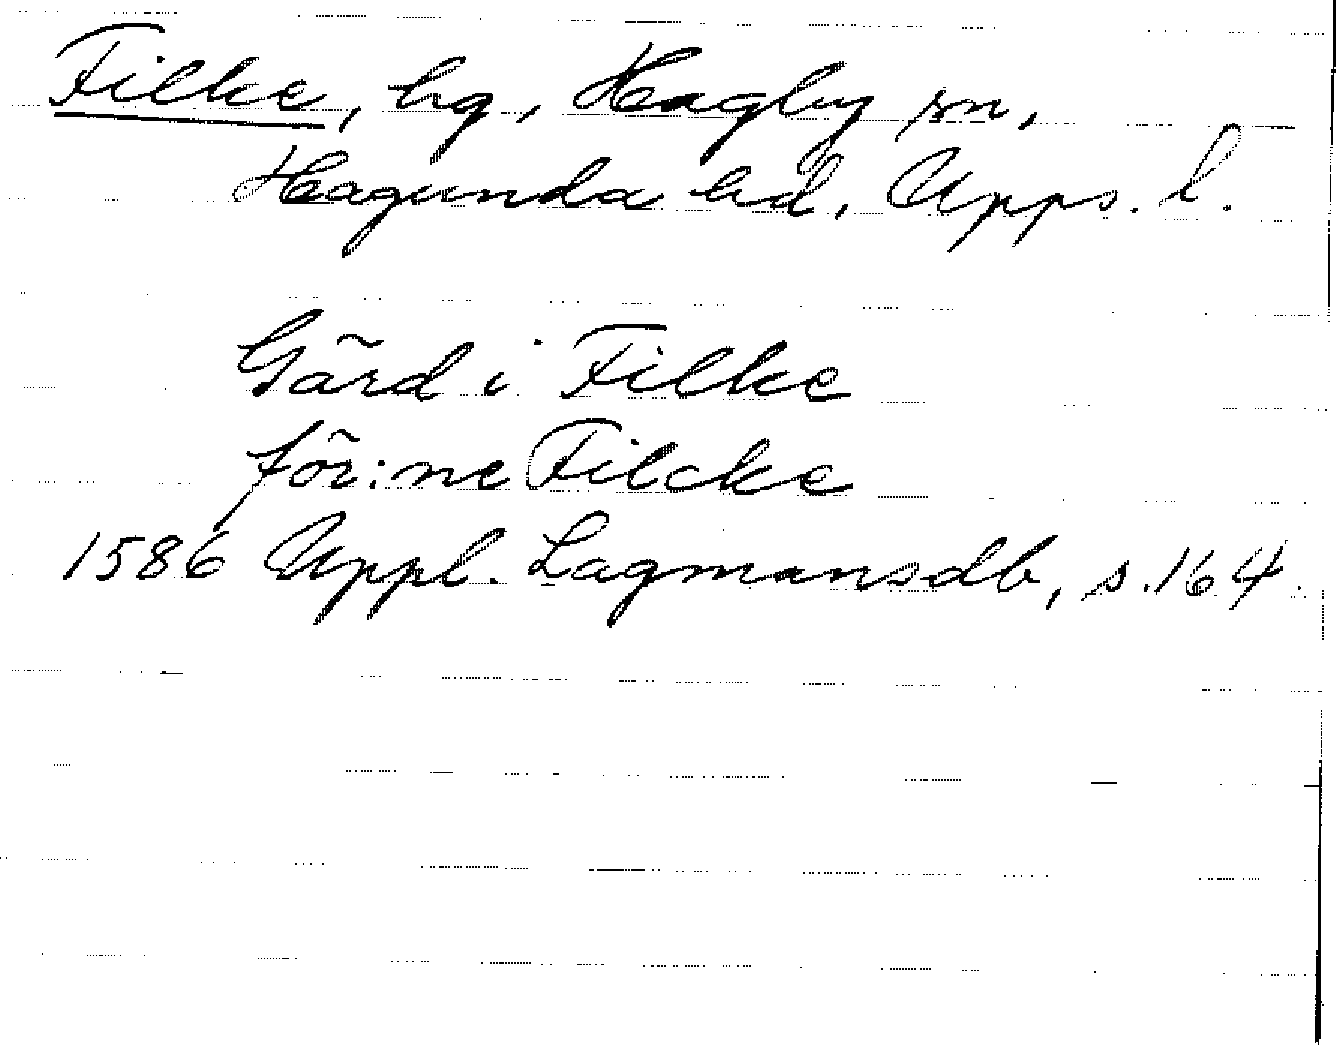 Filke, hg, Hagby sn,
Hagunda hd, Upps. l.
Gård i Filke
för:ne Filcke
1586 Uppl. Lagmansdb, s. 164.